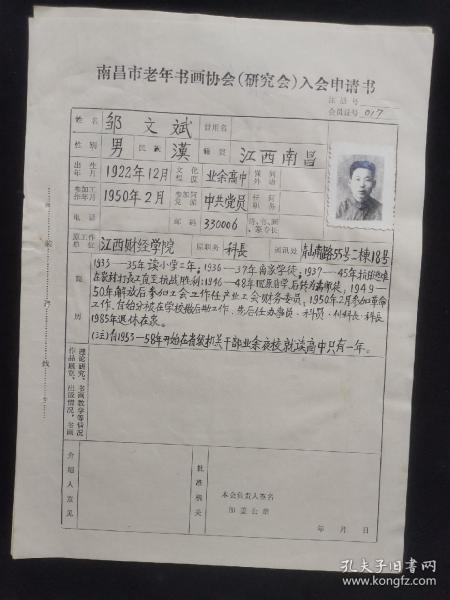 南昌市老年书画协会(研究会)入会申请书
注册号
会员证号 017
姓名 邹文斌 曾用名
性别 男 民族 漢 籍贯 江西南昌
出生年月 1922年12月 文化程度 业余高中
参加工作年月 1950年2月 参加何党派 中共党员 任何职务
电话 邮码 330006
原工作单位 江西财经学院 原职务 科長 通讯处 南路55号二棟18号
简历
1933—35年读小学二年,1936—37年商家学徒,1937—45年抗日逃难
在农村打長工直至抗战胜利,1946—48年回原自学后转为雇佣,1949—
50年解放后参加工会工作任产业工会财务委員,1950年2月参加革命
工作,开始分被在学校做后勤工作,先后任办事员·科员·付科長·科長
1985年退休在家。
(注)自1953—58年开始在省级机关干部业余夜校就读高中只有一年。
理论研究、书画教学等情况
作品展览、出版情况,书画
介绍人意见
批准机关
本会负责人签名
加盖公章
年 月 日
装 订 线
孔夫子旧书网
www.kongfz.com